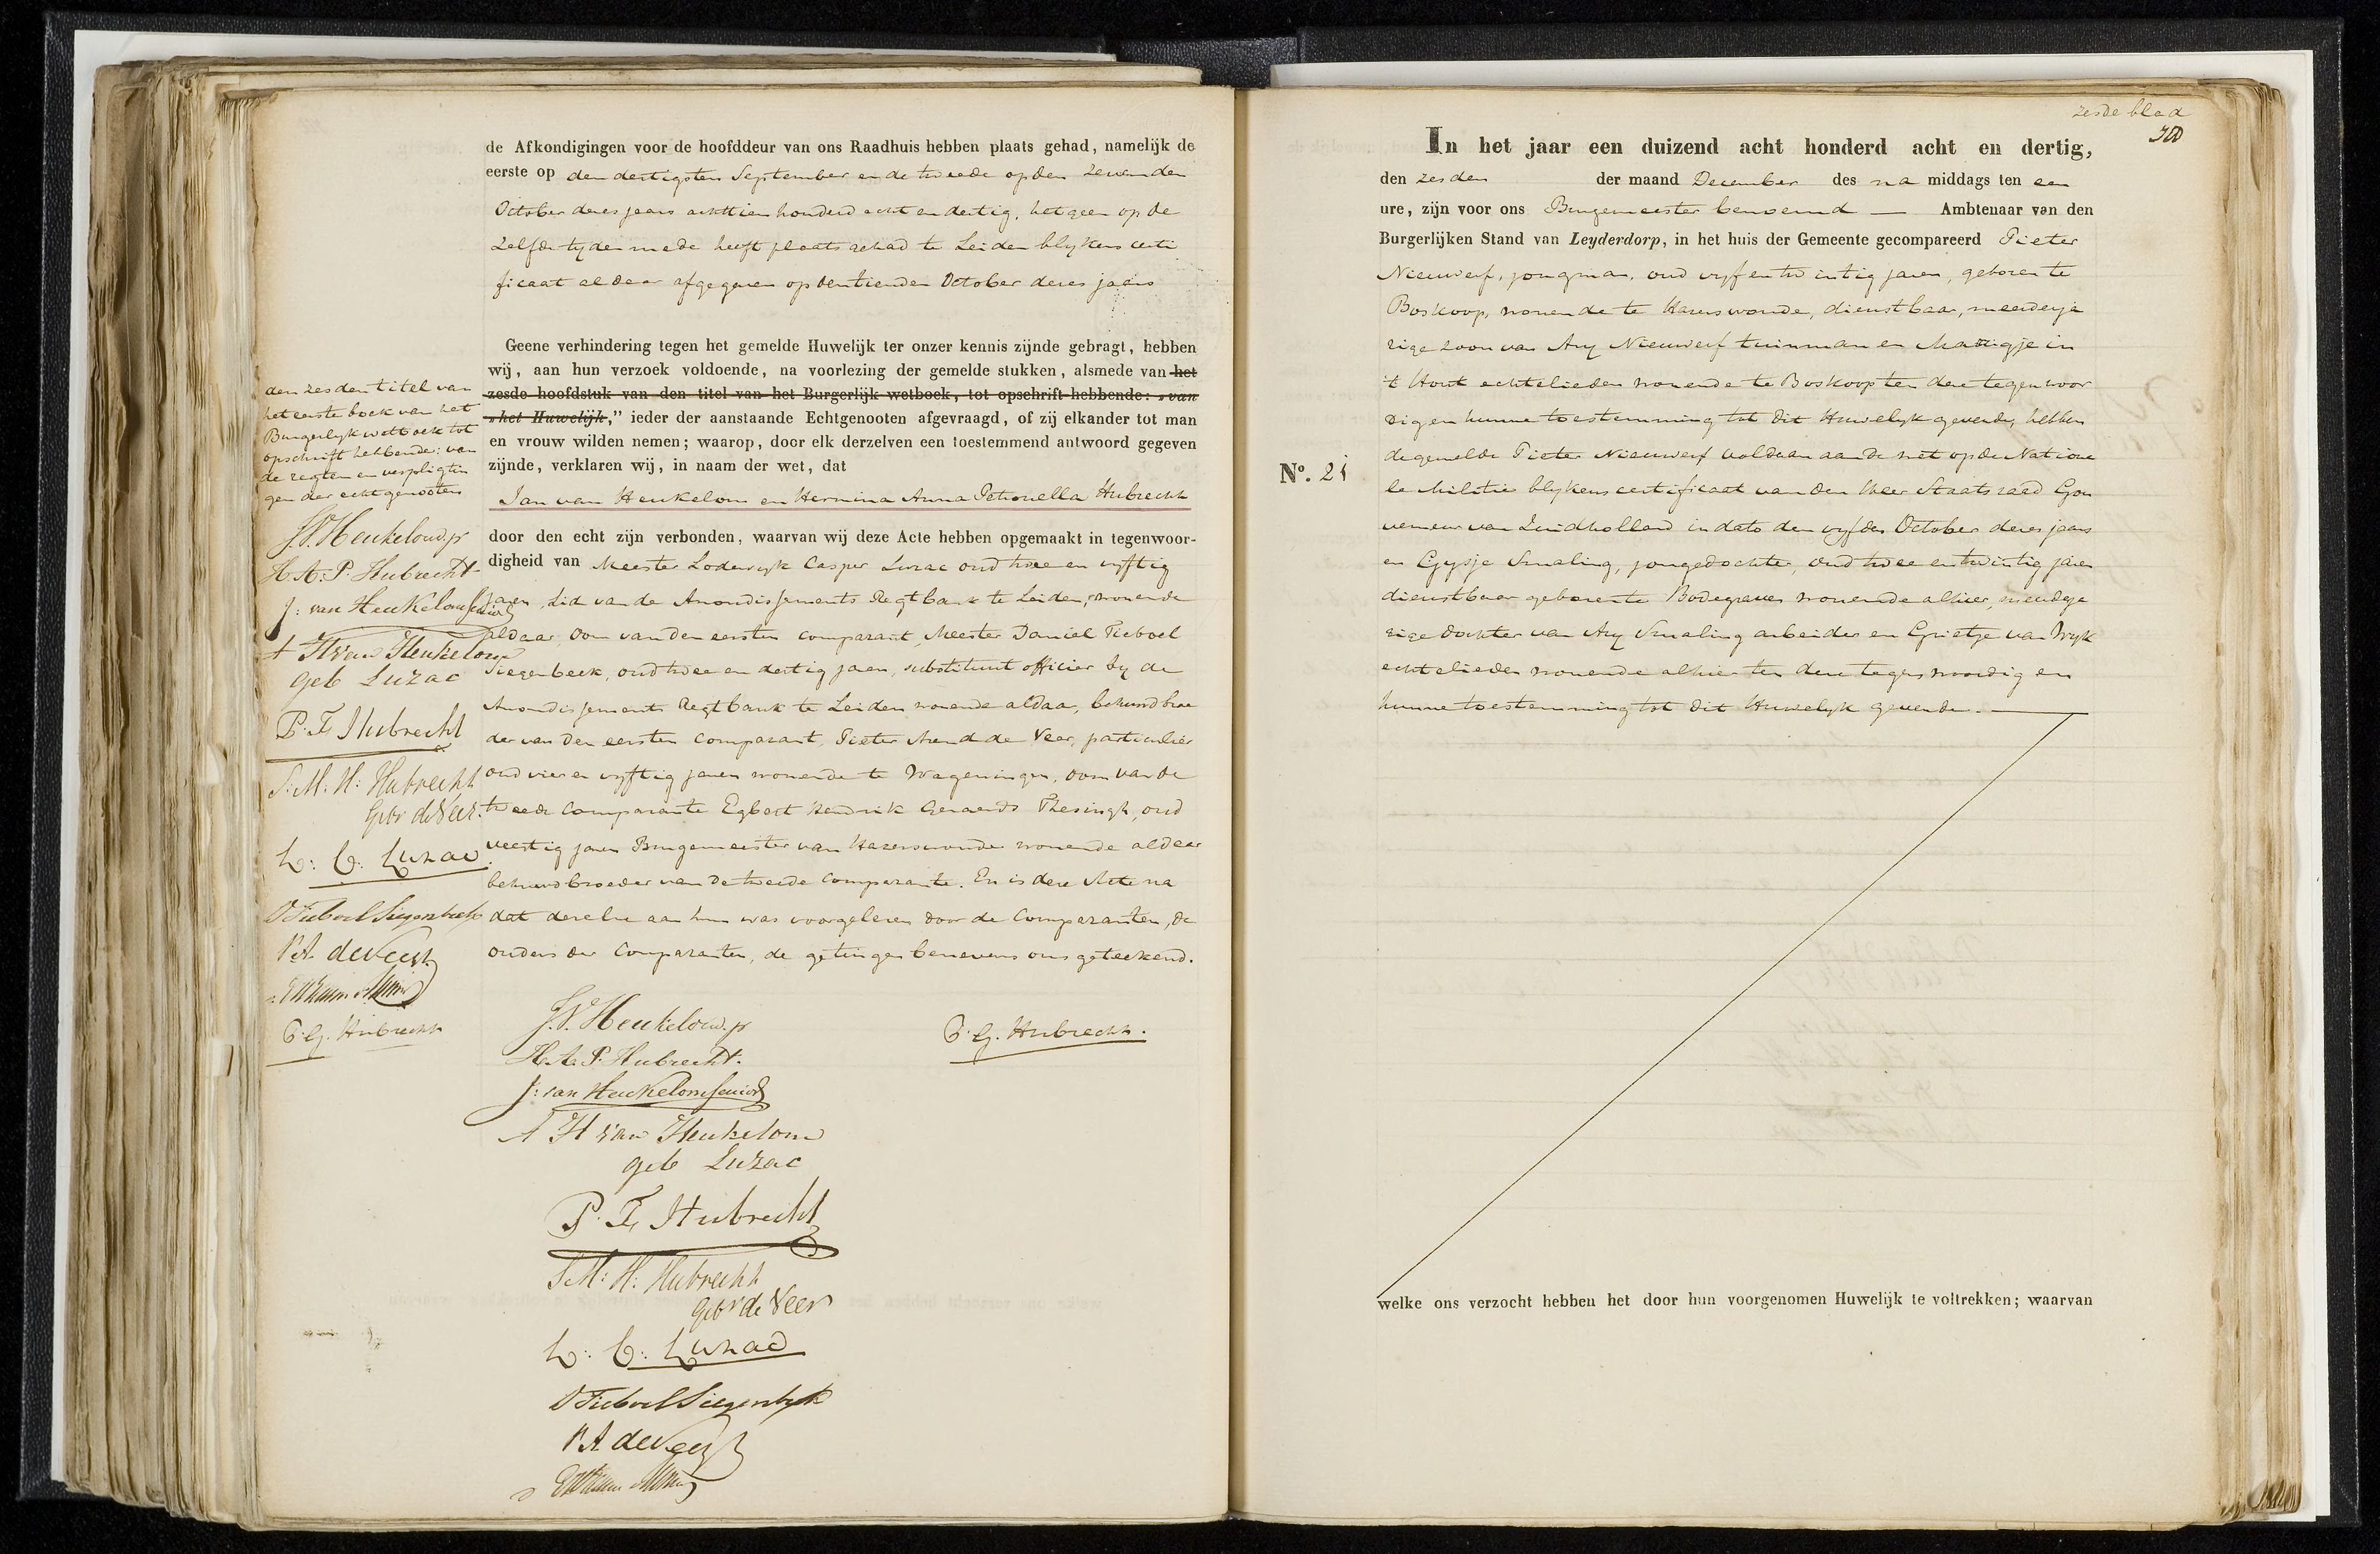 de Afkondigingen voor de hoofddeur van ons Raadhuis hebben plaats gehad, namelijk de
eerste op den dertigsten September en de tweede op den zevenden
October dezes jaars achttien honderd acht en dertig, het geen op de
zelfde tyden mede heeft plaats gehad te Leiden blykens certi
ficaat aldaar afgegeven op den tienden October dezes jaars
Geene verhindering tegen het gemelde Huwelijk ter onzer kennis zijnde gebragt, hebben
wij, aan hun verzoek voldoende, na voorlezing der gemelde stukken, alsmede van het
zesde hoofdstuk van den titel van het Burgerlijk wetboek, tot opschrift hebbende: „van
„het Huwelijk,” ieder der aanstaande Echtgenooten afgevraagd, of zij elkander tot man
en vrouw wilden nemen; waarop, door elk derzelven een toestemmend antwoord gegeven
zijnde, verklaren wij, in naam der wet, dat
Jan van Heukelom en Hermina Anna Petronella Hubrecht
door den echt zijn verbonden, waarvan wij deze Acte hebben opgemaakt in tegenwoor-
digheid van Meester Lodewyk Casper Luzac oud twee en vyftig
jaren, Lid van de Arrondissements Regtbank te Leiden, wonende
aldaar, Oom van den eersten comparant, Meester Daniel Tieboel
Siegenbeek, oud twee en dertig jaren, substituut officier by de
Arrondissements Regtbank te Leiden wonende aldaar, behuwd broe
der van den eersten Comparant, Pieter Arend de Veer, particulier
oud vier en vyftig jaren wonende te Wageningen, oom van de
tweede Comparante Egbert Hendrik Gerards Thesingh, oud
veertig jaren Burgemeester van Hazerswoude wonende aldaar
behuwdbroeder van de tweede Comparante. En is deze Acte na
dat dezelve aan hun was voorgelezen door de Comparanten, de
ouders der Comparanten, de getuigen benevens ons geteekend.
den zesden titel van
het eerste boek van het
Burgerlyk wetboek tot
opschrift hebbende: van
de regten en verpligtin
gen der echtgenooten
J. V. Heukelom jr
H. A: P. Hubrecht
J: van Heukelom Senior
A H van Heukelom
geb Luzac
P. F. Hubrecht
S: M: H: Hubrecht
gebr de Veer.
L: C: Luzac.
D Tieboel Siegenbeek
P A de Veer
P. G. Hubrecht
J. V. Heukelom jr
H. A. P. Hubrecht.
J: van Heukelom Senior
A H van Heukelom
geb Luzac
P. F. Hubrecht
S: M: H: Hubrecht
gebr de Veer
L: C: Luzac
D Tieboel Siegenbeek
P A de Veer
P. G. Hubrecht.
zesde blad
In het jaar een duizend acht honderd acht en dertig,
den zesden der maand December des na middags ten een
ure, zijn voor ons Burgemeester benoemd — Ambtenaar van den
Burgerlijken Stand van Leyderdorp, in het huis der Gemeente gecompareerd Pieter
Nieuwerf, jongman, oud vyf en twintig jaren, geboren te
Boskoop, wonende te Hazerswoude, dienstbaar, meerderja
rige zoon van Ary Nieuwerf tuinman en Marrigje in
't Hout echtelieden wonende te Boskoop ten deze tegenwoor
dig en hunne toestemming tot dit Huwelyk gevende, hebben
de gemelde Pieter Nieuwerf voldaan aan de wet op de Nationa
le Militie blykens certificaat van den Heer Staatsraad Gou
verneur van Zuidholland in dato den vyfden October dezes jaars
en Gysje Smaling, jongedochter, oud twee en twintig jaren
dienstbaar geboren te Bodegraven wonende alhier, minderja
rige dochter van Ary Smaling arbeider en Grietje van Wyk
echtelieden wonende alhier ten deze tegenwoordig en
hunne toestemming tot dit Huwelyk gevende.
No. 21
welke ons verzocht hebben het door hun voorgenomen Huwelijk te voltrekken; waarvan